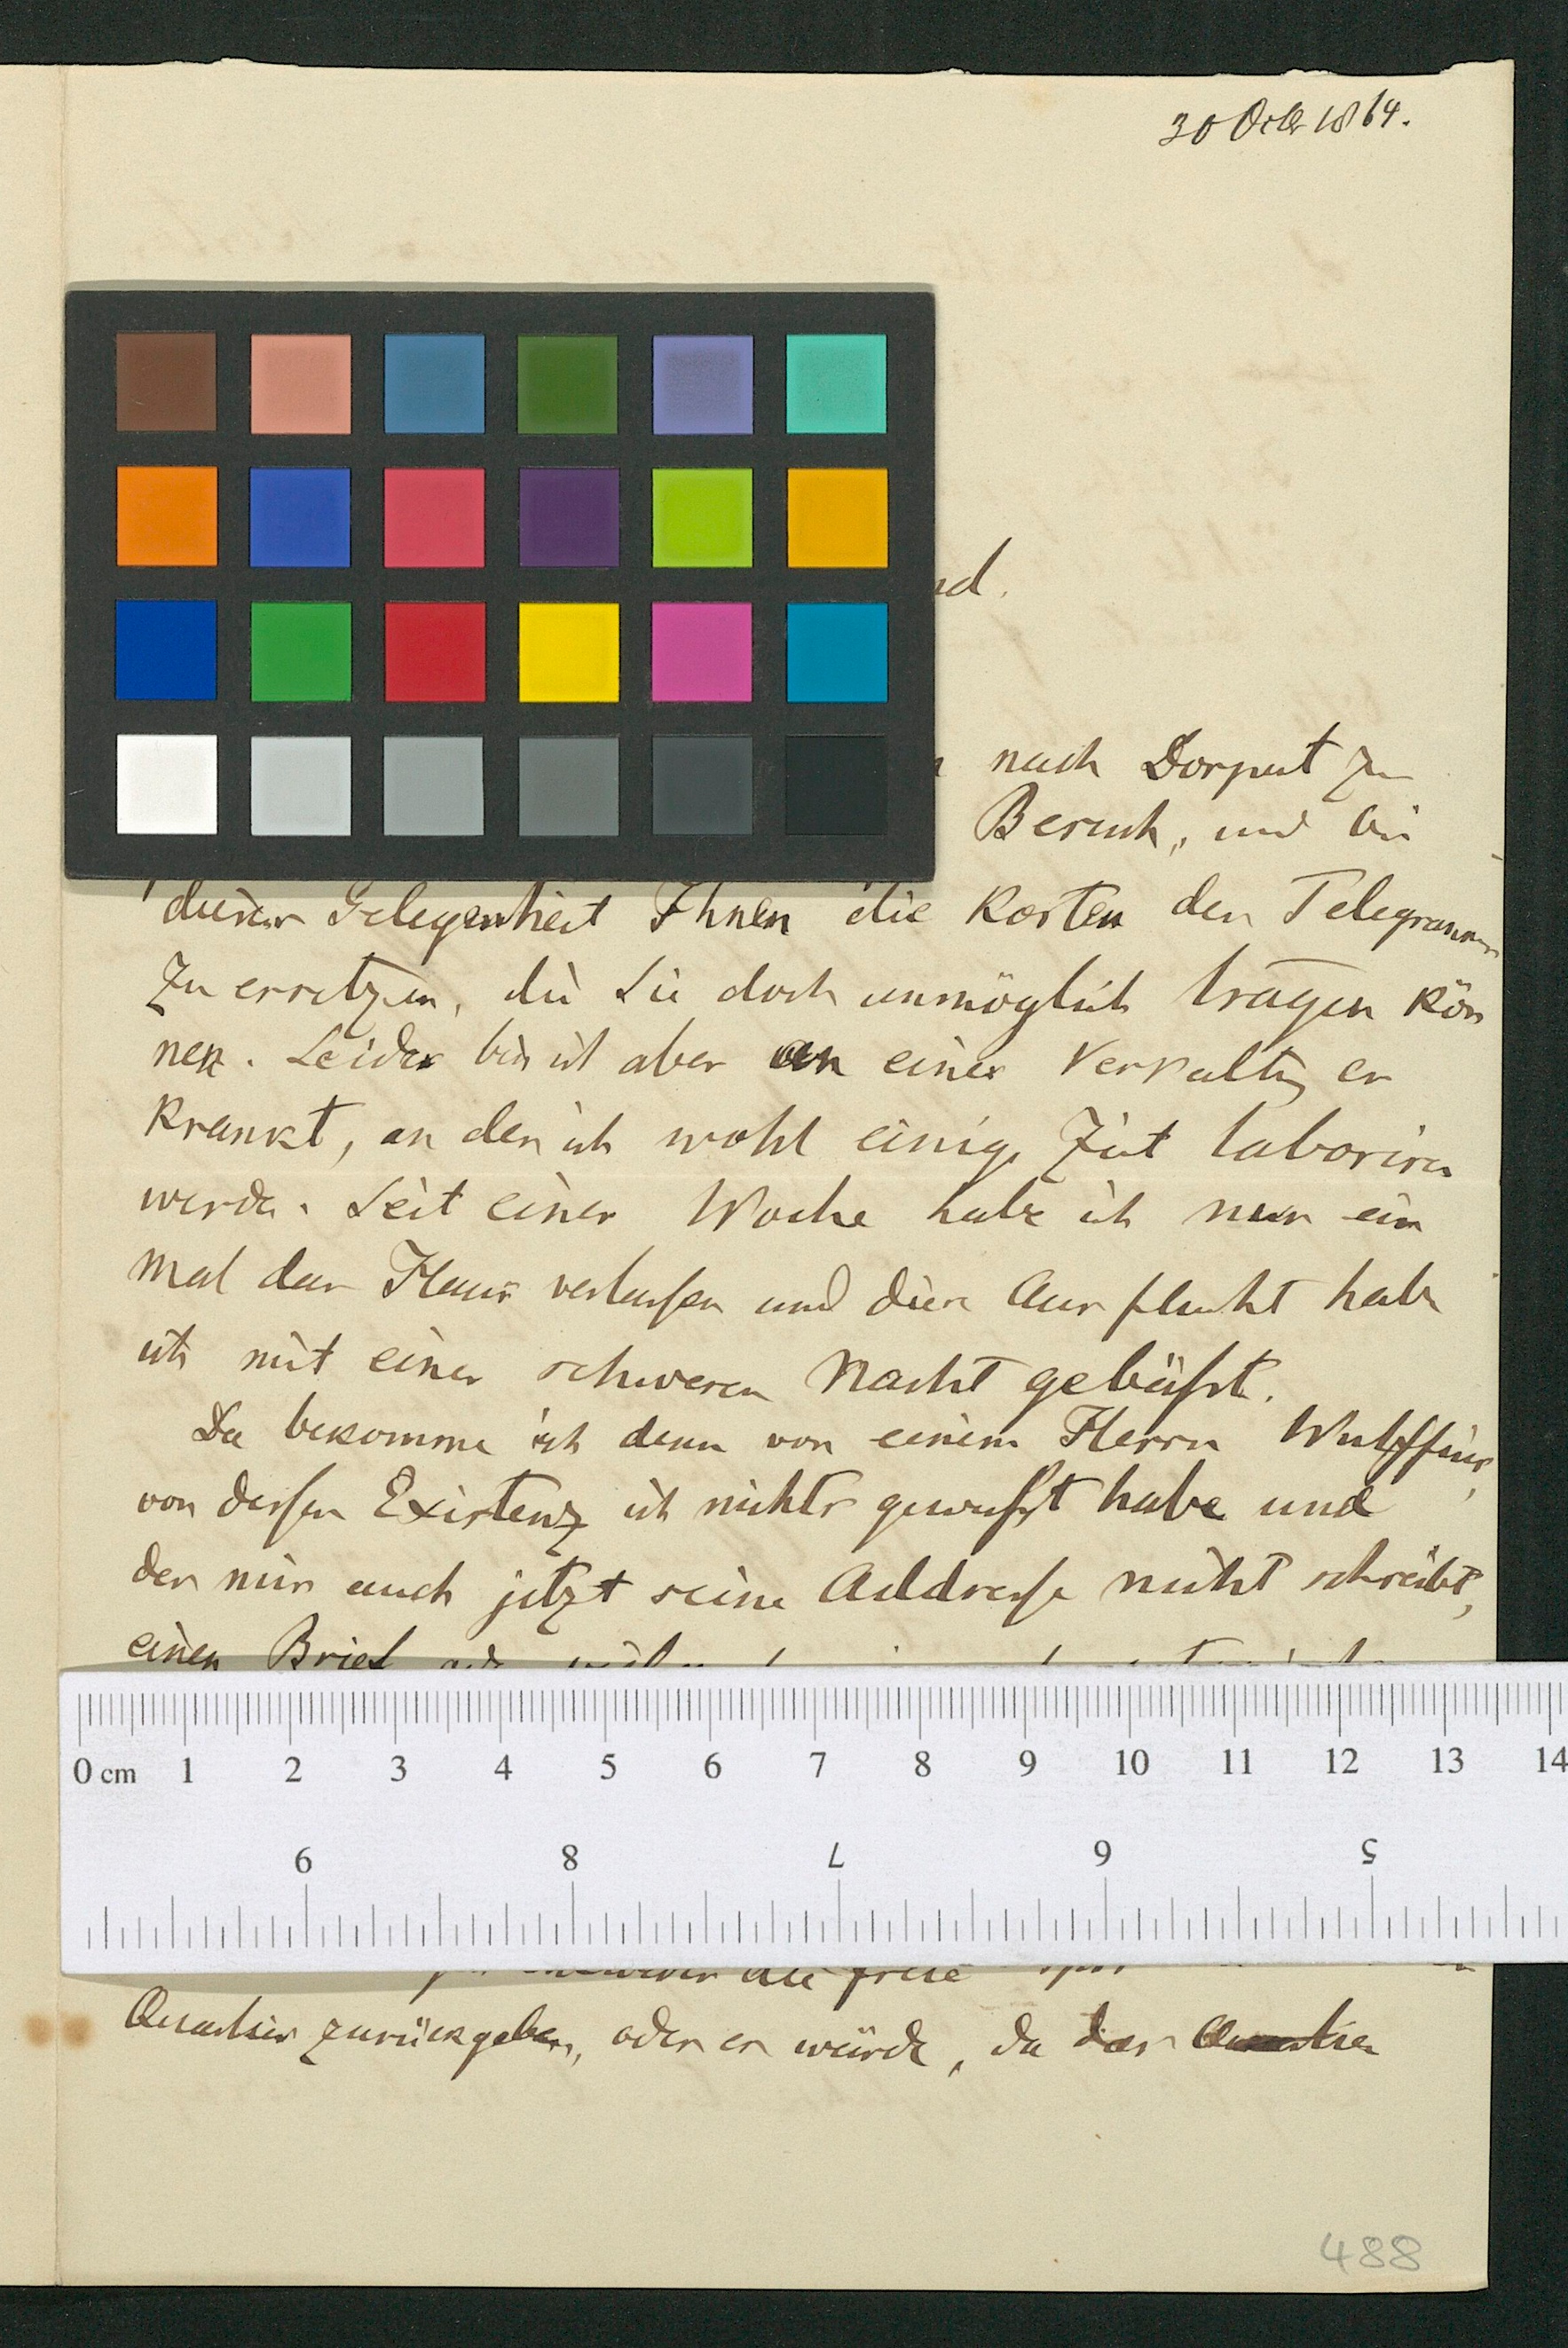 30 Octbr 1864.
nd.
nach Dorpat zu
Besuch, und bei
dieser Gelegenheit Ihnen die Kosten des Telegramms
zu ersetzen, die Sie doch unmöglich tragen kön
nen. Leider bin ich aber an einer Verkältung er
krankt, an der ich wohl einige Zeit laboriren
werde. Seit einer Woche habe ich nur ein
mal das Haus verlassen und diese Ausflucht habe
ich mit einer schweren Nacht gebüßt.
Da bekomme ich denn von einem Herrn
von dessen Existenz ich nichts gewußt habe und
der mir auch jetzt seine Addresse nicht schreibt,
einen Brief
0 cm 1 2 3 4 5 6 7 8 9 10 11 12 13 14
9 8 7 6 5
entweder die freie
Quartier zurückgeben, oder er würde, da das Quartier
488